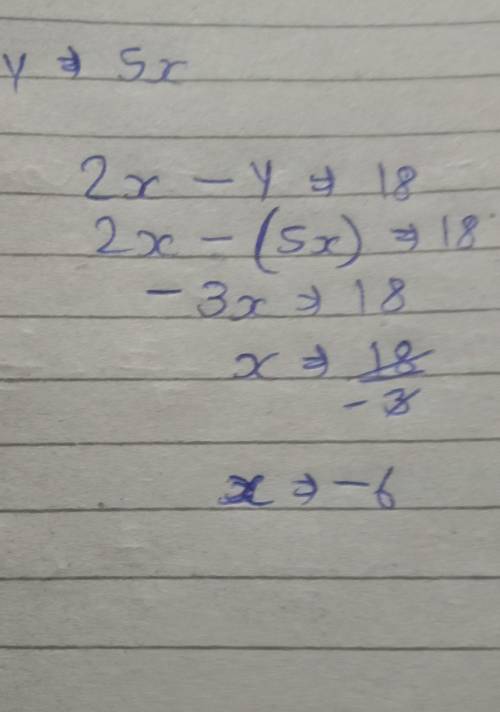 y ⇒ 5x
2x - y ⇒ 18
2x - (5x) ⇒ 18
- 3x ⇒ 18
x ⇒ 18/-3
x ⇒ -6